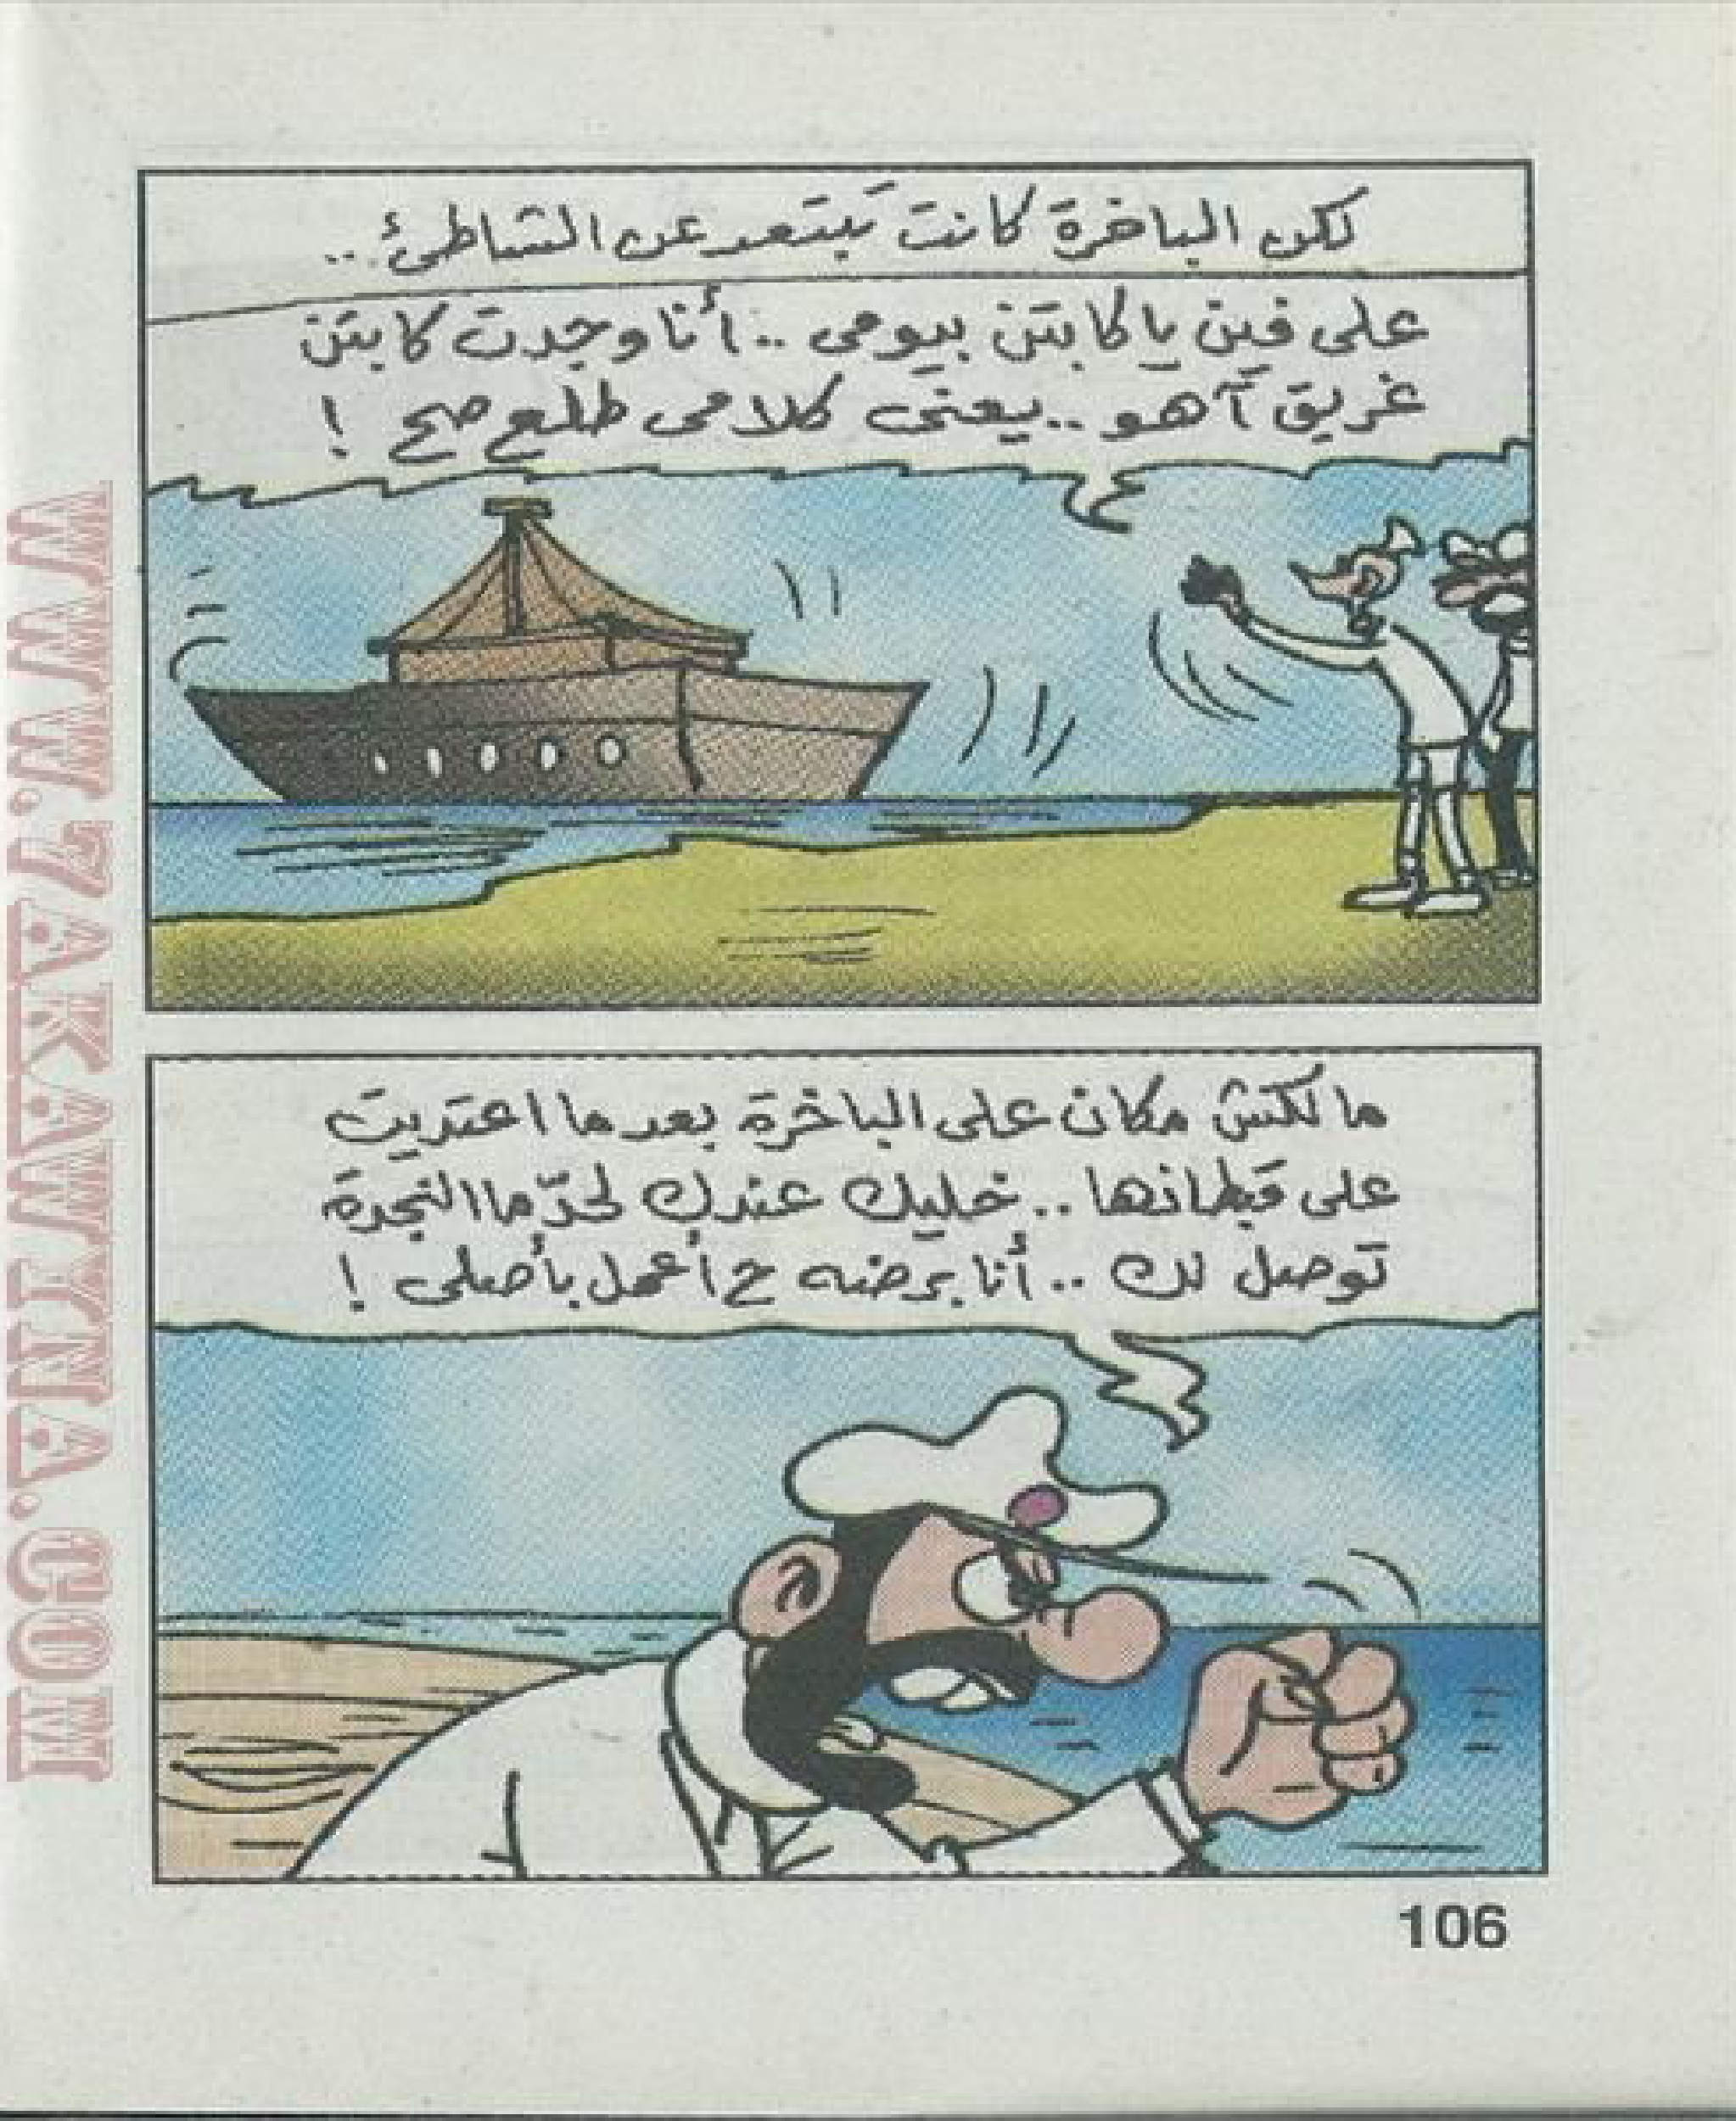 لكن الباخرة كانت تبتعد عن الشاطئ ..
على فين يا كابتن بيومى .. أنا وجدت كابتن
غريق آهو .. يعنى كلامى طلع صح !
مالكش مكان على الباخرة بعد ما اعتديت
على قبطانها .. خليك عندك لحدّ ما النجدة
توصل لك .. أنا برضه ح أعمل بأصلى !
106
WWW.7AKAWINA.COM